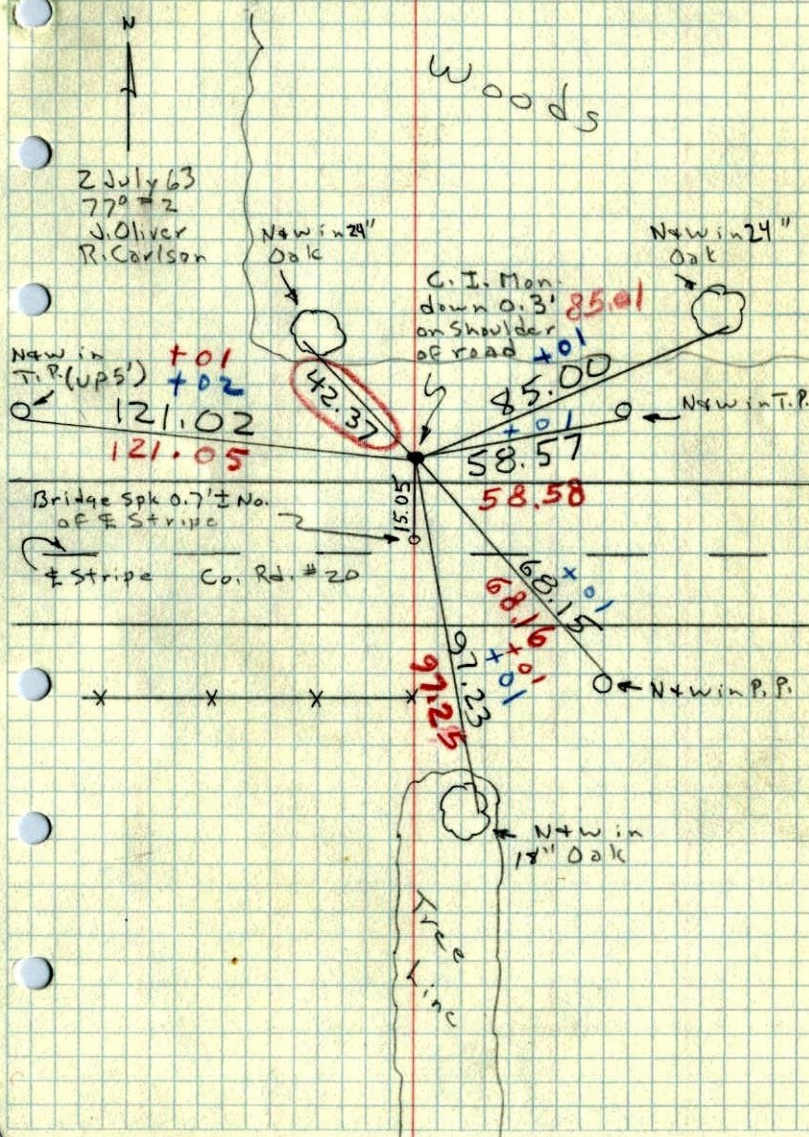 N
Woods
2 July 63
77° #2
J. Oliver
R. Carlson
N&W in 24"
Oak
N&W in 24"
Oak
C. I. Mon.
down 0.3'
on shoulder
of road
85.01
+01
85.00
N&W in
T.P. (up 5')
+01
+02
121.02
121.05
42.37
N&W in T.P.
+01
58.57
58.58
15.05
Bridge Spk 0.7'± No.
of ℄ Stripe
℄ Stripe Co. Rd. #20
+01
68.15
68.16
+01
+01
97.23
97.25
N&W in P.P.
N&W in
18" Oak
Tree
Line